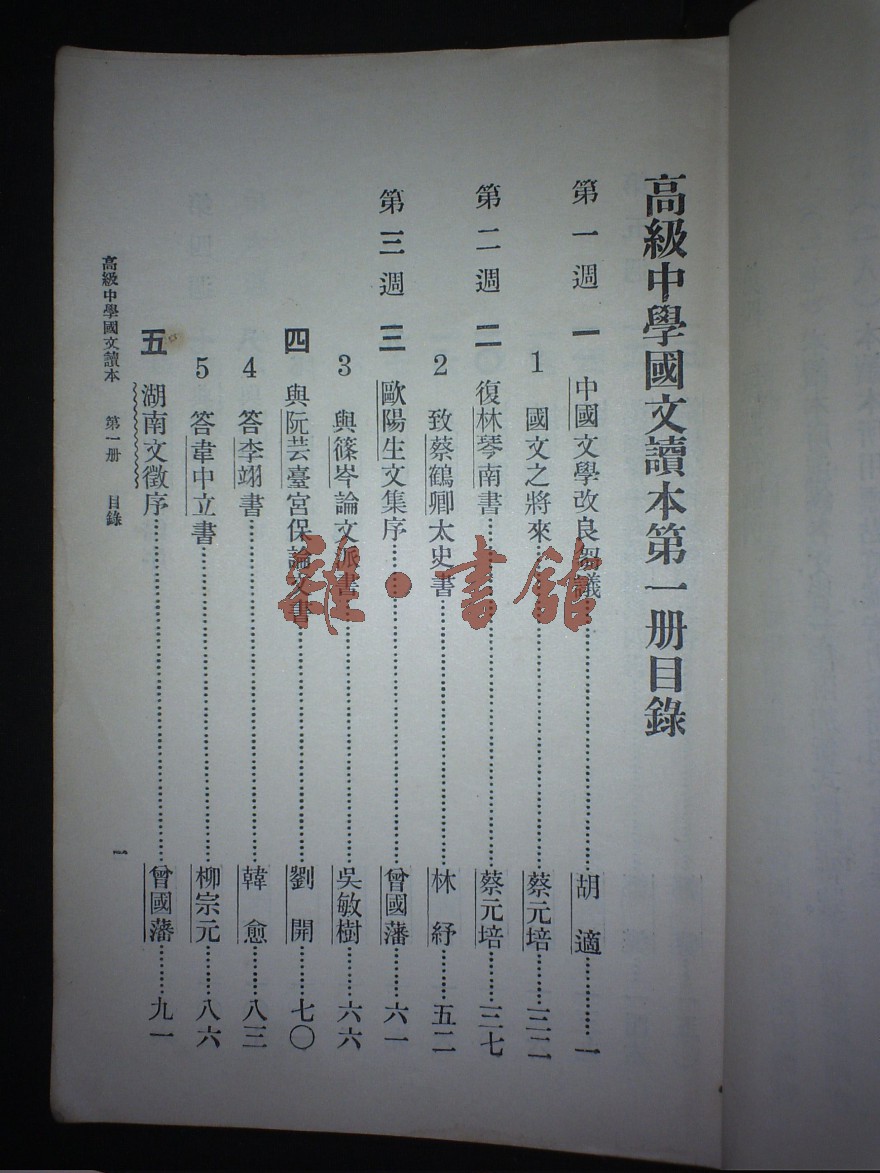 高級中學國文讀本第一册目錄
第一週 一 中國文學改良芻議……胡適……一
1 國文之將來……蔡元培……三二
第二週 二 復林琴南書……蔡元培……三七
2 致蔡鶴卿太史書……林紓……五二
第三週 三 歐陽生文集序……曾國藩……六一
3 與篠岑論文派書……吳敏樹……六六
四 與阮芸臺宮保論文書……劉開……七〇
4 答李翊書……韓愈……八三
5 答韋中立書……柳宗元……八六
五 湖南文徵序……曾國藩……九一
高級中學國文讀本 第一册 目錄
一
雜·書館